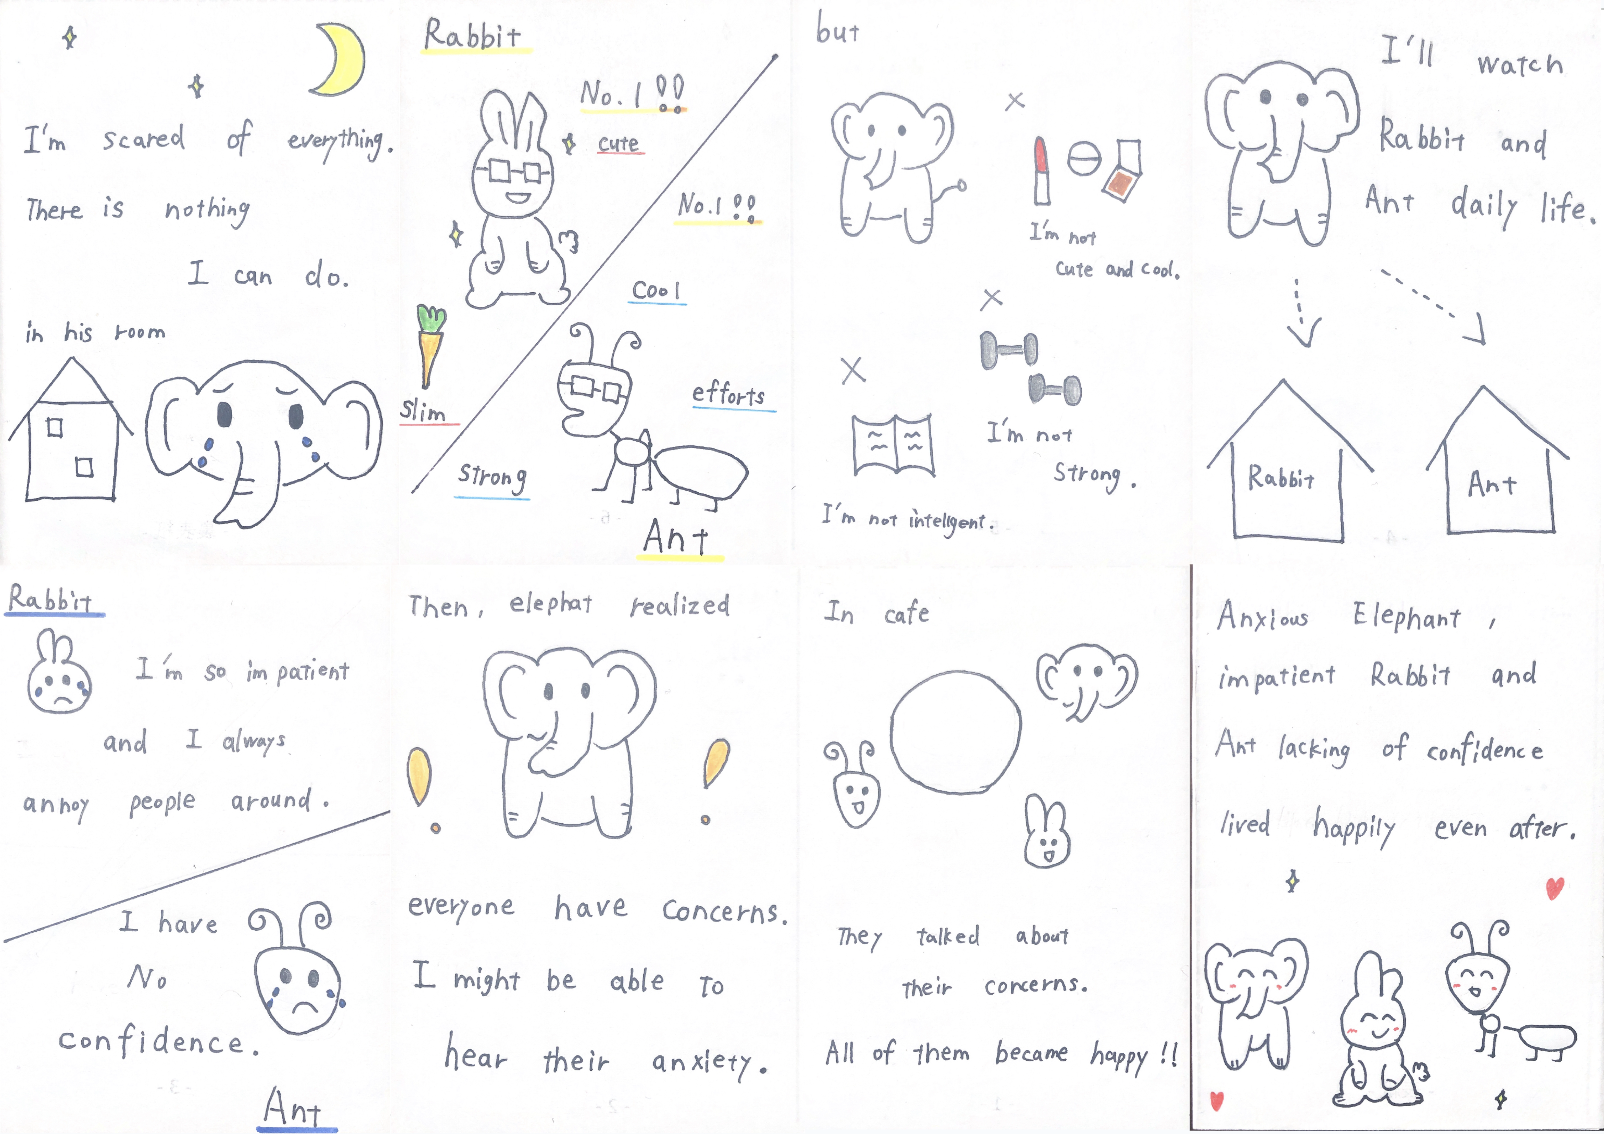 I'm scared of everything.
There is nothing
I can do.
in his room
Rabbit
No.1 !!
cute
No.1 !!
Cool
Slim
efforts
Strong
Ant
but
I'm not
cute and cool.
I'm not
Strong.
I'm not intelgent.
I'll watch
Rabbit and
Ant daily life.
Rabbit
Ant
Rabbit
I'm so impatient
and I always
annoy people around.
I have
No
confidence.
Ant
Then, elephat realized
everyone have concerns.
I might be able to
hear their anxiety.
In cafe
They talked about
their concerns.
All of them became happy!!
Anxious Elephant,
impatient Rabbit and
Ant lacking of confidence
lived happily even after.